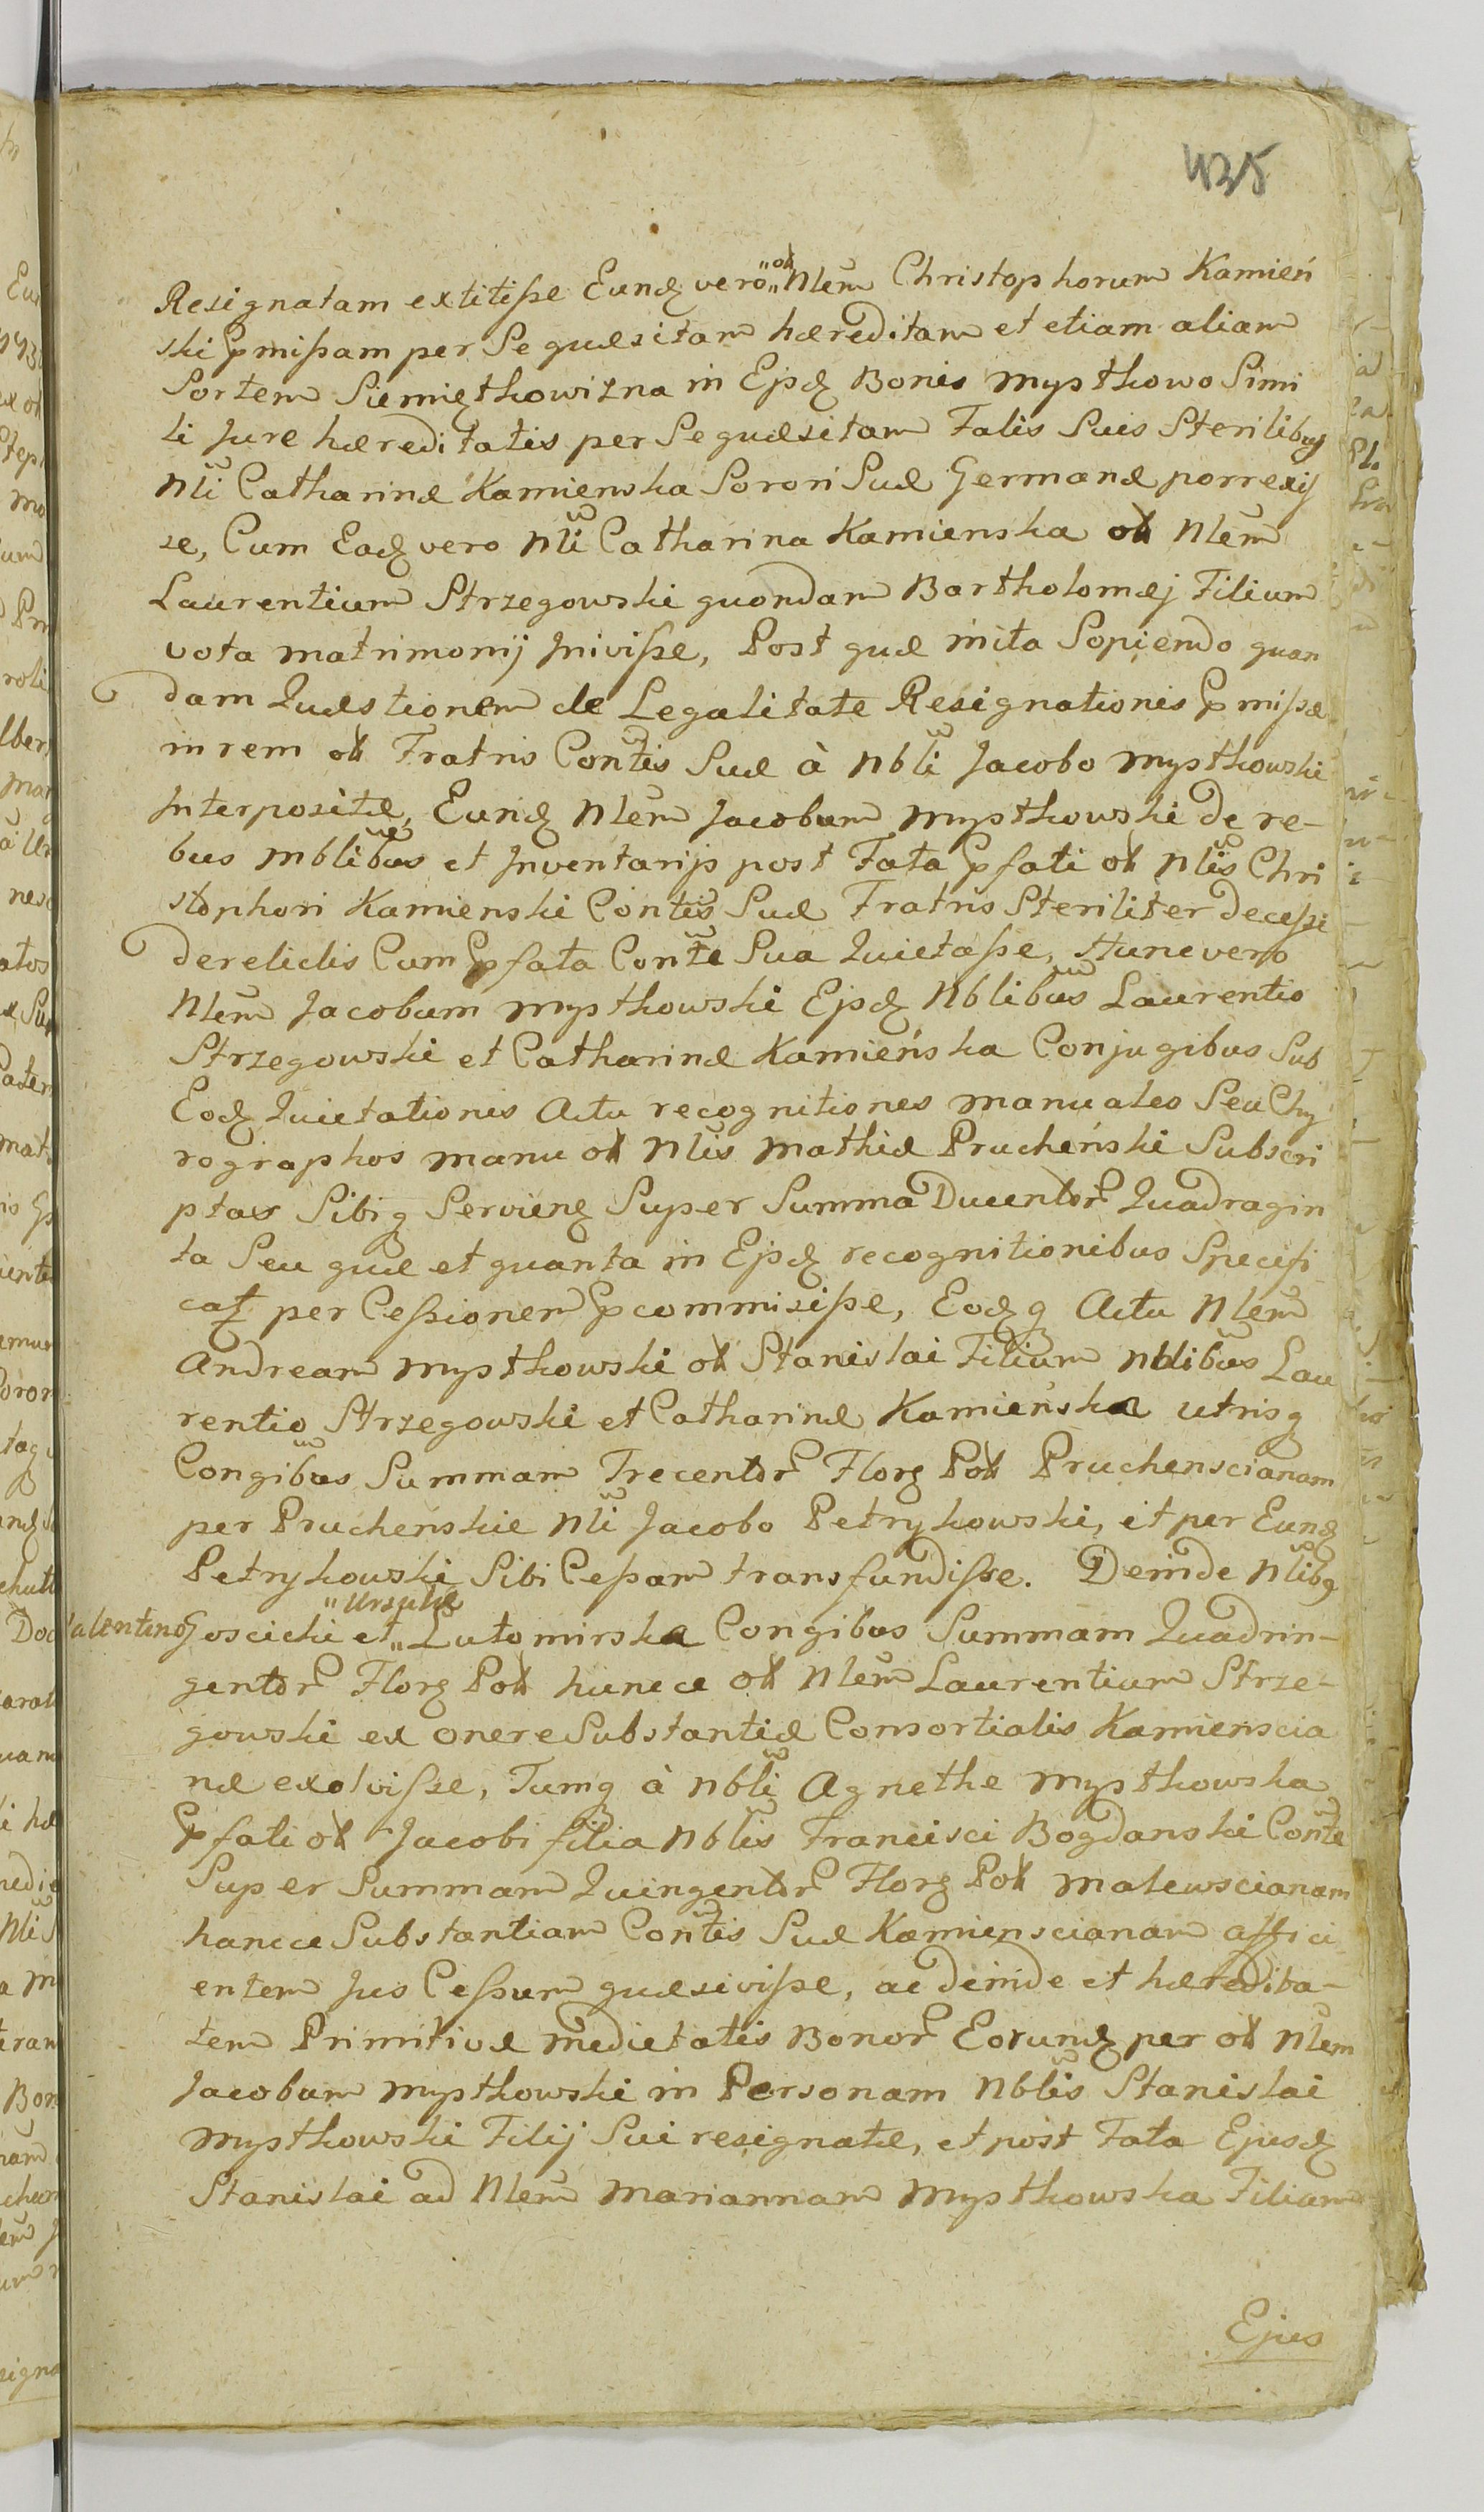 435
Resignatam extitisse Eundꝫ vero "ol" Nlem Christophorum Kamień
ski ꝑmissam per Se quæsitam hæreditam et etiam aliam
Sortem Siemięthowizna in Ejsdꝫ Bonis Mysthowo Simi
li Jure hæreditatis per Se quæsitam Fatis Suis Sterilibus
Nli Catharinæ Kamienska Sorori Suæ Germanæ porrexis
se, Cum Eadꝫ vero Nli Catharina Kamienska ol Nlem
Laurentium Strzegowski quondam Bartholomæj Filium
vota matrimonij Inivisse, Post quæ inita Sopiendo quan
dam Quæstionem de Legalitate Resignationis ꝑmissæ
in rem ol Fratris Contis Suæ à Nbli Jacobo Mysthowski
Interpositæ, Eundꝫ Nlem Jacobum Mysthowski de re-
bus mblibus et Inventarijs post Fata ꝑfati ol Nlis Chri
stophori Kamienski Contis Suæ Fratris Steriliter decessi
derelictis Cum ꝑfata Conte Sua Quietasse, Hunc vero
Nlem Jacobum Mysthowski Ejsdꝫ Nblibus Laurentio
Strzegowski et Catharinæ Kamieńska Conjugibus Sub
Eodꝫ Quietationis Actu recognitiones manuales Seu Chy
rographos manu ol Nlis Mathiæ Prucheński Subscri
ptas Sibiq Servienꝫ Super Summa Ducentor Quadragin
ta Seu quæ et quanta in Ejsdꝫ recognitionibus Specifi
cat per Cessionem ꝑcommisisse, Eodꝫq Actu Nlem
Andream Mysthowski ol Stanislai Filium Nblibus Lau
rentio Strzegowski et Catharinæ Kamieńska utrisq
Congibus Summam Trecentor Florꝫ Pol Pruchenscianam
per Pruchenskie Nli Jacobo Petrykowski, et per Eundꝫ
Petrykowski Sibi Cessam transfundisse. Deinde Nlibq
"Ursulæ
Valentino Goscicki et „Lutomirska Congibus Summam Quadrin-
gentor Florꝫ Pol huncce ol Nlem Laurentium Strze-
gowski ex onere Substantiæ Consortialis Kamienscia
næ exolvisse, Tumq à Nbli Agnethe Mysthowska
ꝑfati ol Jacobi filia Nblis Francisci Bogdanski Conte
Super Summam Quingentor Florꝫ Pol Malewscianam
hancce Substantiam Contis Suæ Kamienscianam affici
entem Jus Cessum quæsivisse, ac deinde et hæredita-
tem Primitivæ medietatis Bonor Eorundꝫ per ol Nlem
Jacobum Mysthowski in Personam Nblis Stanislai
Mysthowski Filij Sui resignatæ, et post Fata Ejusdꝫ
Stanislai ad Nlem Mariannam Mysthowska Filiam
Ejus